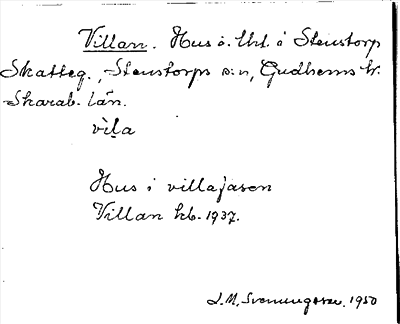 Villan. Hus o. lht. å Stenstorp
Skatteg., Stenstorps s:n, Gudhems hr.
Skarab. län.
vila
Hus i villajason
Villan kb. 1937.
J. M. Svenungsson. 1950